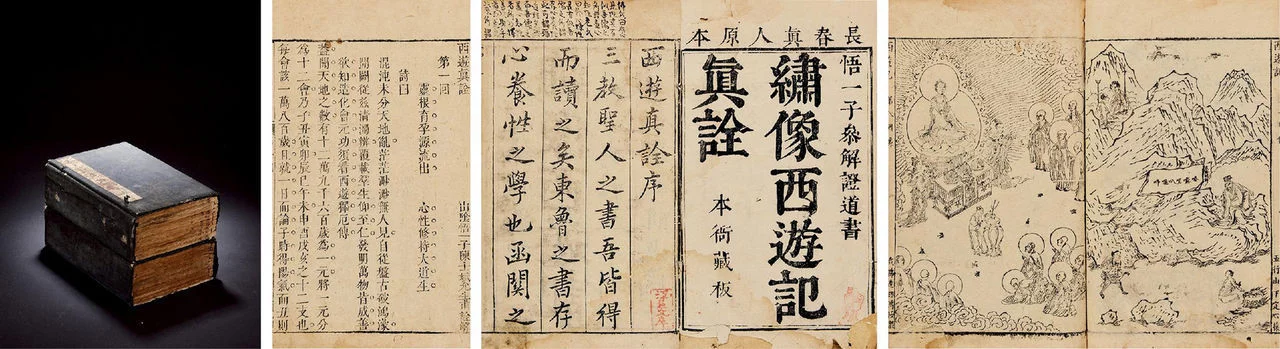 西遊真詮
第一回
靈根育孕源流出 心性修持大道生
山陰悟一子陳士斌允生甫詮解
詩曰
混沌未分天地亂茫茫渺渺無人見自從盤古破鴻濛
開闢從茲清濁辨覆載羣生仰至仁發明萬物皆成善
欲知造化會元功須看西遊釋厄傳
蓋聞天地之數有十二萬九千六百歲為一元將一元分
為十二會乃子丑寅卯辰巳午未申酉戌亥之十二支也
每會該一萬八百歲且就一日而論子時得陽氣而丑則
長春眞人原本
悟一子叅解證道書
繡像西遊記
眞詮
本衙藏板
西遊真詮序
三教聖人之書吾皆得
而讀之矣東魯之書存
心養性之學也函關之